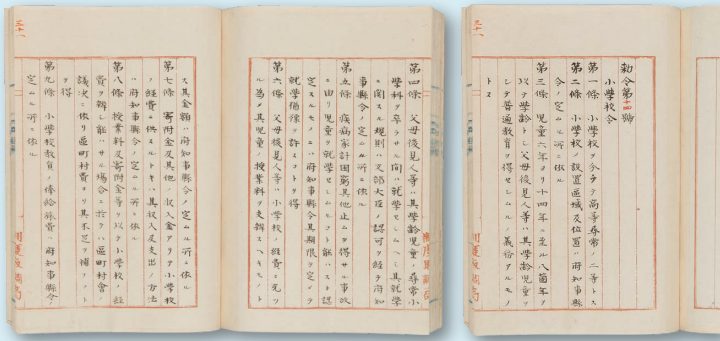 勅令第十四號
小學校令
第一條 小學校ヲ分チテ高等尋常ノ二等トス
第二條 小學校ノ設置區域及位置ハ府知事縣
令ノ定ムル所ニ依ル
第三條 児童六年ヨリ十四年ニ至ル八箇年ヲ
以テ學齡トシ父母後見人等ハ其學齡児童ヲ
シテ普通教育ヲ得セシムルノ義務アルモノ
トス
第四條 父母後見人等ハ其學齡児童ノ尋常小
學科ヲ卒ラサル間ハ就學セシムヘシ其就學
ニ関スル規則ハ文部大臣ノ認可ヲ経テ府知
事縣令ノ定ムル所ニ依ル
第五條 疾病家計困窮其他止ムヲ得サル事故
ニ由リ児童ヲ就學セシムルコト能ハスト認
定スルモノニハ府知事縣令其期限ヲ定メテ
就學猶豫ヲ許スコトヲ得
第六條 父母後見人等ハ小學校ノ經費ニ充ツ
ル為メ其児童ノ授業料ヲ支辨スヘキモノト
ス其金額ハ府知事縣令ノ定ムル所ニ依ル
第七條 寄附金及其他ノ収入金アリテ小學校
ノ經費ニ供スルトキハ其収入及支出ノ方法
ハ府知事縣令ノ定ムル所ニ依ル
第八條 授業料及寄附金等ヲ以テ小學校ノ經
費ヲ辨シ能ハサル場合ニ於テハ區町村會ノ
議決ニ依リ區町村費ヨリ其不足ヲ補フコトヲ
得
第九條 小學校教員ノ俸給旅費ハ府知事縣令ノ
定ムル所ニ依ル